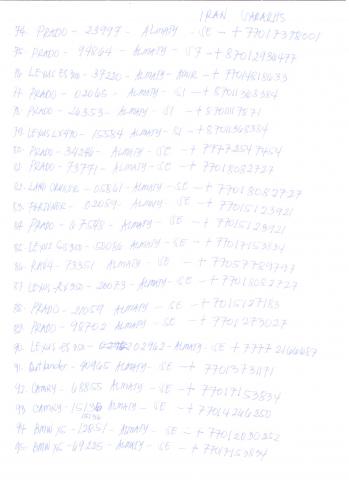 IRAN
74. PRADO - 23997 - ALMATY - SE - +77017378001
75. PRADO - 94864 - ALMATY - S7 - +87012930477
76. LEXUS ES300 - 37220 - ALMATY - - +77014818633
77. PRADO - 02065 - ALMATY - S1 - +8701
78. PRADO - 26353 - ALMATY - S1 - +8701117571
79. LEXUS LX470 - 15584 - ALMATY - S1 - +8701
80. PRADO - 34246 - ALMATY - SE - +77772547454
81. PRADO - 73771 - ALMATY - SE - +77018082727
82. LAND CRUISER - 05861 - ALMATY - SE - +77018082727
83. FORTUNER - 02059 - ALMATY - SE - +77015123921
84. PRADO - 67548 - ALMATY - SE - +77015123921
85. LEXUS - 50086 - ALMATY - SE - +77017153834
86. RAV4 - 73351 - ALMATY - SE - +77057789797
87. LEXUS RX350 - 20073 - ALMATY - SE - +77018082727
88. PRADO - 20059 ALMATY - SE - +77015127183
89. PRADO - 98702 ALMATY - SE - +7701273027
90. LEXUS ES350 - 202962 - ALMATY - SE - +77772166687
91. Outlander - 90965 ALMATY - SE - +77013731171
92. CAMRY - 68855 ALMATY - SE - +77017153834
93. CAMRY - 15136 ALMATY - SE - +77014246250
15136
94. BMW X5 - 12851 - ALMATY - SE - +77012030252
95. BMW X5 - 69225 - ALMATY - SE - +77017153834